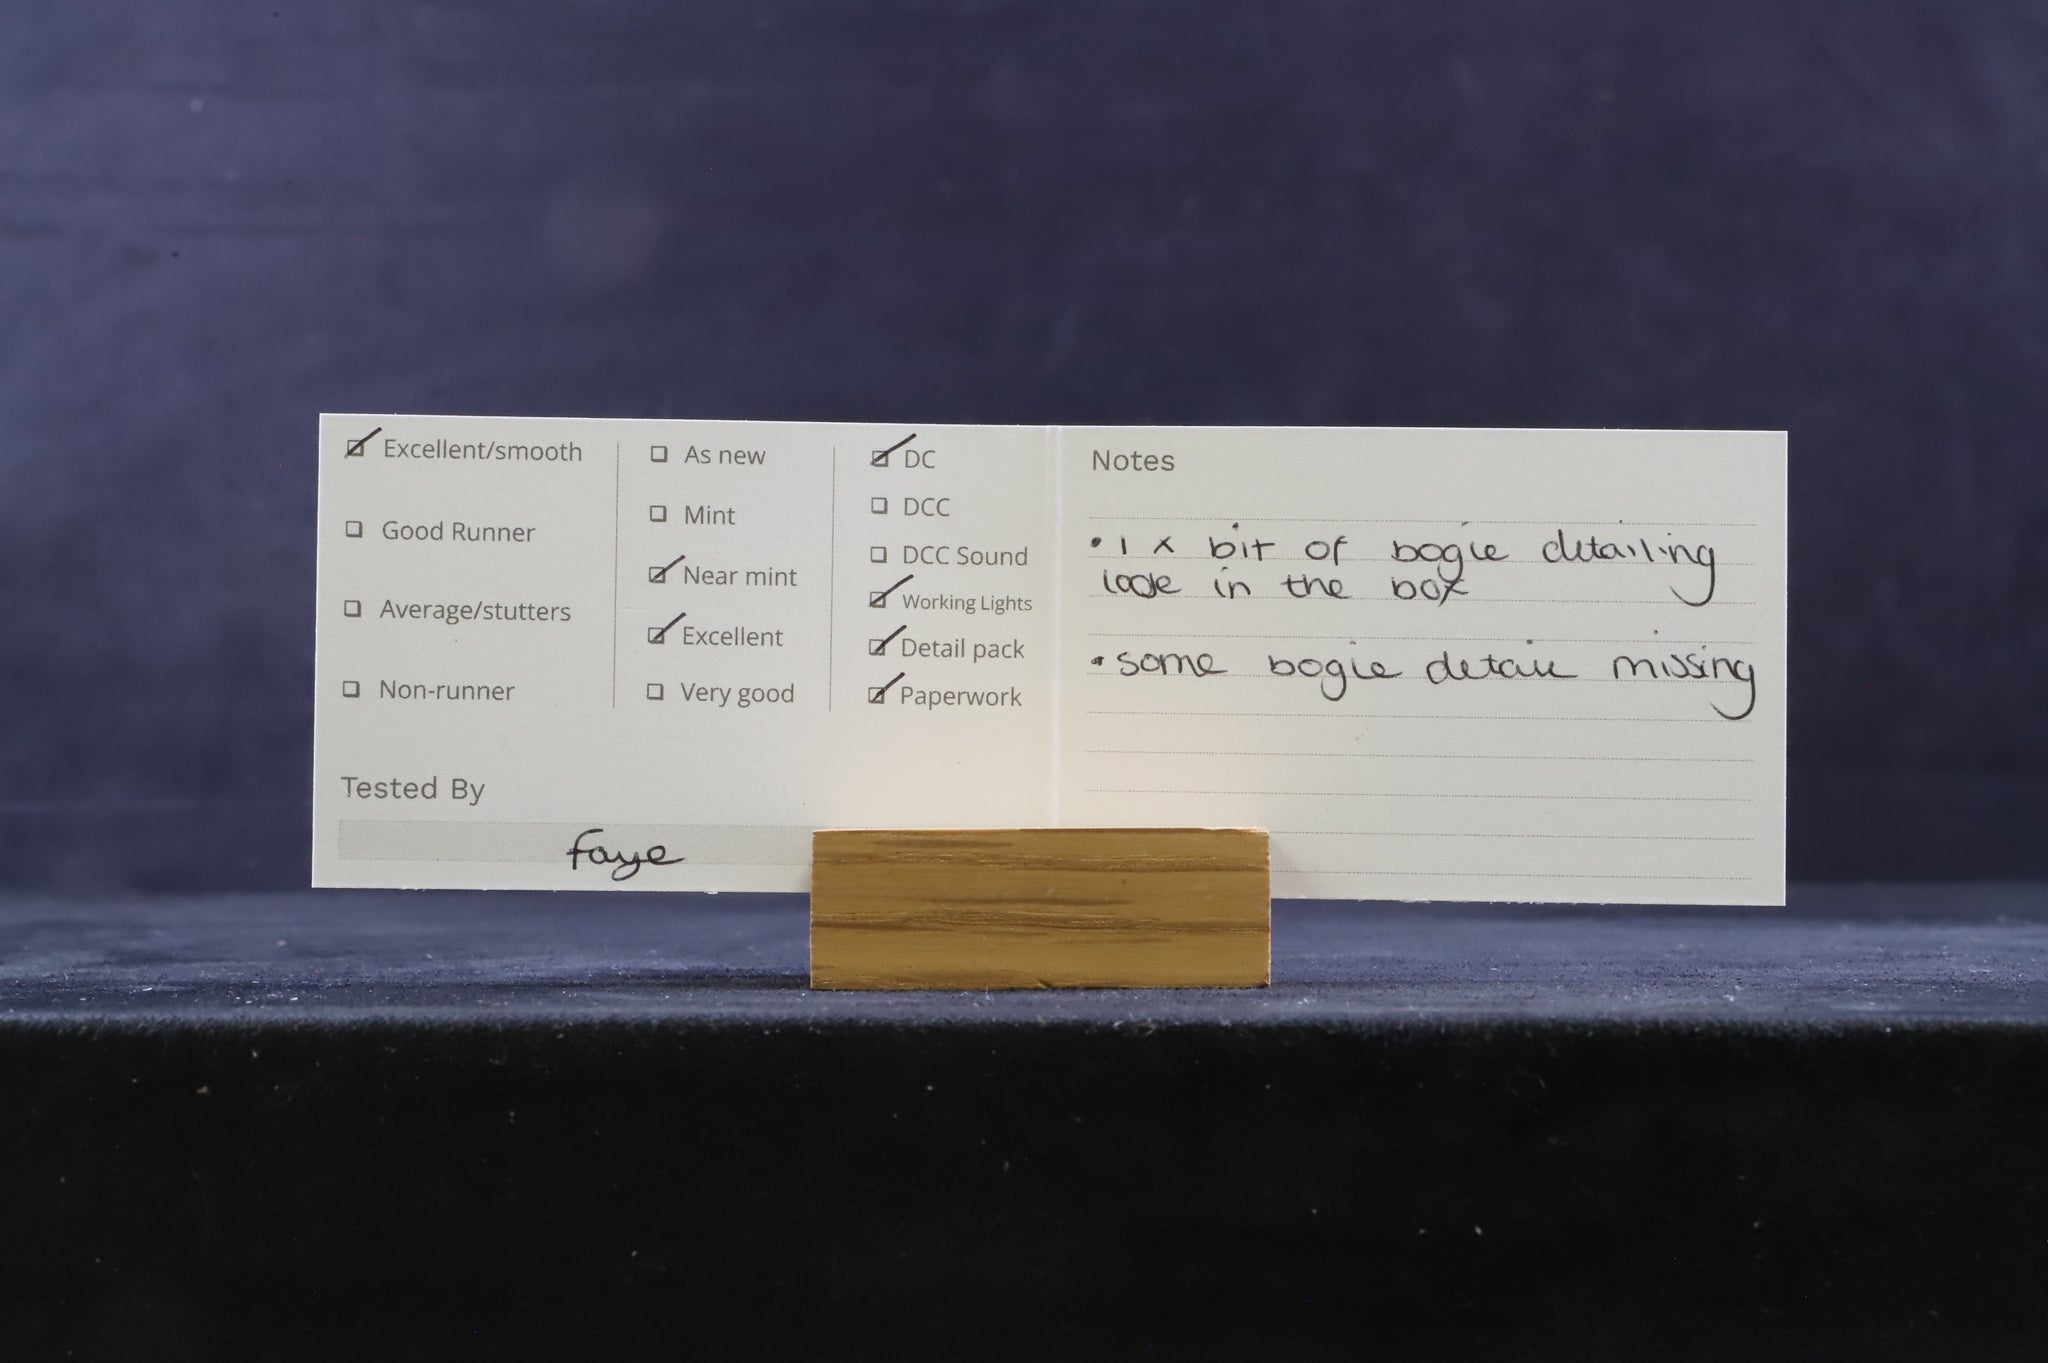 Excellent/smooth
Good Runner
Average/stutters
Non-runner
As new
Mint
Near mint
Excellent
Very good
DC
DCC
DCC Sound
Working Lights
Detail pack
Paperwork
Tested By
faye
Notes
• 1 x bit of bogie detailing
loose in the box
• some bogie detail missing